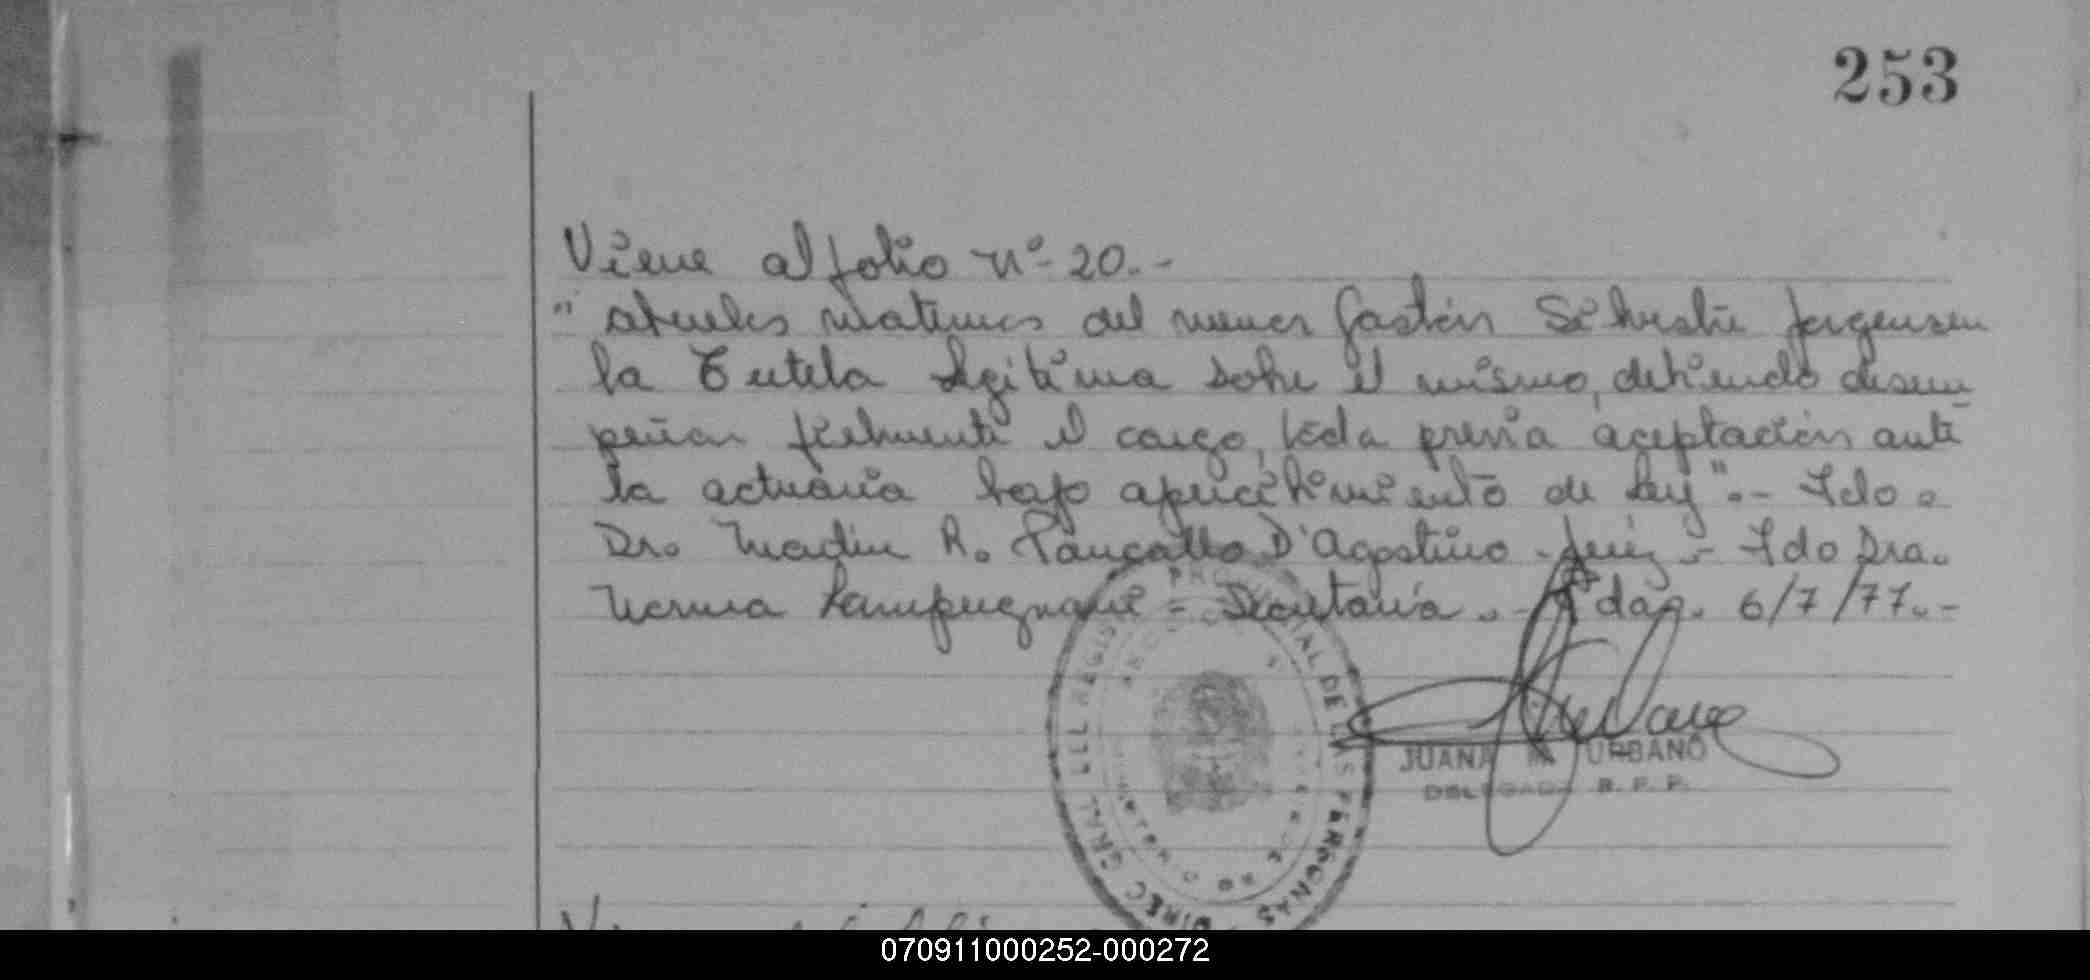 253
Viene al folio nº- 20.-
" abuelos maternos del menor Gastón Silvestre Jorgensen
la Tutela Legitima sobre el mismo, debiendo desem
peñar fielmente el cargo, toda previa aceptación ante
la actuaria bajo apercibimiento de Ley".- Fdo.
Dr. Martin R. D'Agostino - Juez - Fdo Dra.
Norma Lampugnani - Secretaria.- 6/7/77.-
JUANA URBANO
DELEGADA R. P. P.
DIREC GRAL REGISTRO PROVINCIAL DE LAS PERSONAS
070911000252-000272